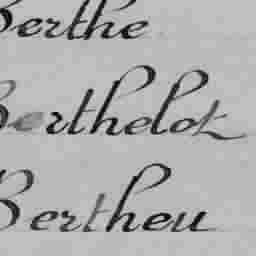 Berthe
Berthelot
Bertheu